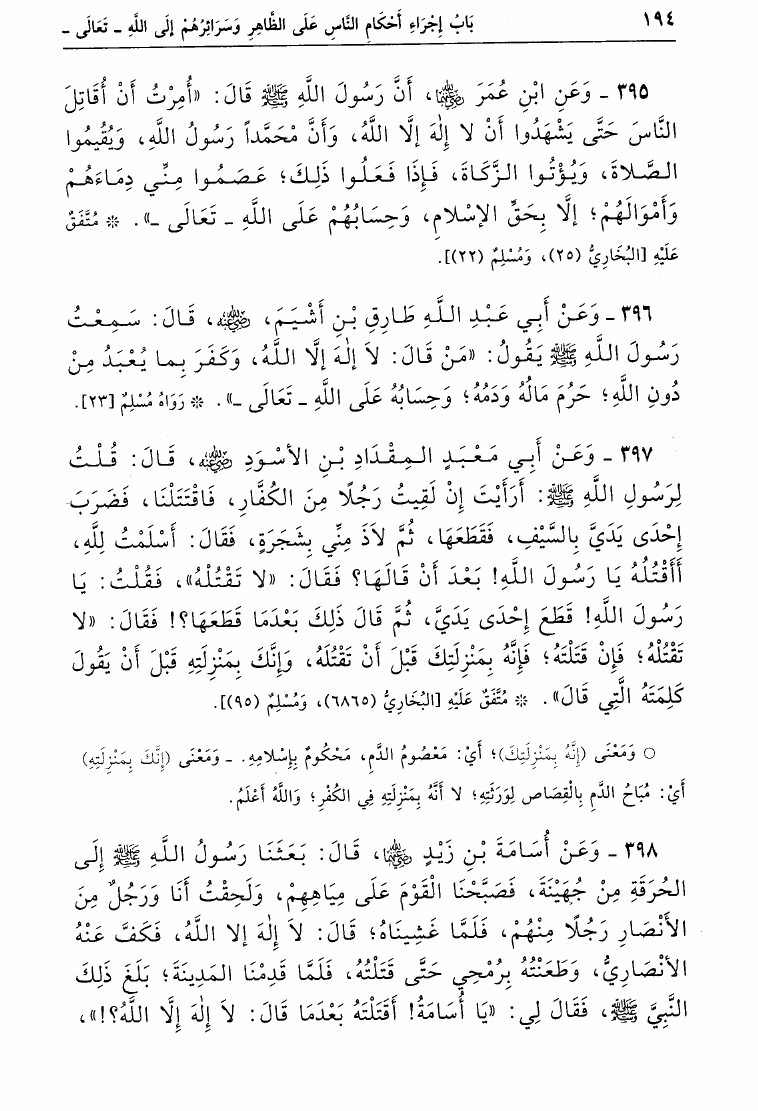 ١٩٤ بَابُ إِجْرَاءِ أَحْكَامِ النَّاسِ عَلَى الظَّاهِرِ وَسَرَائِرُهُمْ إِلَى اللَّهِ ـ تَعَالَى ـ
٣٩٥ ـ وَعَنِ ابْنِ عُمَرَ رضي الله عنهما، أَنَّ رَسُولَ اللَّهِ ﷺ قَالَ: «أُمِرْتُ أَنْ أُقَاتِلَ
النَّاسَ حَتَّى يَشْهَدُوا أَنْ لا إِلٰهَ إلَّا اللَّهُ، وَأَنَّ مُحَمَّداً رَسُولُ اللَّهِ، وَيُقِيمُوا
الصَّلاةَ، وَيُؤْتُوا الزَّكَاةَ، فَإِذَا فَعَلُوا ذَلِكَ؛ عَصَمُوا مِنِّي دِمَاءَهُمْ
وَأَمْوَالَهُمْ؛ إلَّا بِحَقِّ الإسْلامِ، وَحِسَابُهُمْ عَلَى اللَّهِ ـ تَعَالَى ـ». * مُتَّفَقٌ
عَلَيْهِ [البُخَارِيُّ (٢٥)، وَمُسْلِمٌ (٢٢)].
٣٩٦ ـ وَعَنْ أَبِي عَبْدِ اللَّهِ طَارِقِ بْنِ أَشْيَمَ، رضي الله عنه، قَالَ: سَمِعْتُ
رَسُولَ اللَّهِ ﷺ يَقُولُ: «مَنْ قَالَ: لاَ إِلٰهَ إلَّا اللَّهُ، وَكَفَرَ بِما يُعْبَدُ مِنْ
دُونِ اللَّهِ؛ حَرُمَ مَالُهُ وَدَمُهُ؛ وَحِسَابُهُ عَلَى اللَّهِ ـ تَعَالَى ـ». * رَوَاهُ مُسْلِمٌ [٢٣].
٣٩٧ ـ وَعَنْ أَبِي مَعْبَدٍ المِقْدَادِ بْنِ الأسْوَدِ رضي الله عنه، قَالَ: قُلْتُ
لِرَسُولِ اللَّهِ ﷺ: أَرَأَيْتَ إِنْ لَقِيتُ رَجُلًا مِنَ الكُفَّارِ، فَاقْتَتَلْنَا، فَضَرَبَ
إِحْدَى يَدَيَّ بِالسَّيْفِ، فَقَطَعَهَا، ثُمَّ لاَذَ مِنِّي بِشَجَرَةٍ، فَقَالَ: أَسْلَمْتُ لِلَّهِ،
أَأَقْتُلُهُ يَا رَسُولَ اللَّهِ! بَعْدَ أَنْ قَالَهَا؟ فَقَالَ: «لا تَقْتُلْهُ»، فَقُلْتُ: يَا
رَسُولَ اللَّهِ! قَطَعَ إِحْدَى يَدَيَّ، ثُمَّ قَالَ ذَلِكَ بَعْدَمَا قَطَعَهَا؟! فَقَالَ: «لا
تَقْتُلْهُ؛ فَإِنْ قَتَلْتَهُ؛ فَإِنَّهُ بِمَنْزِلَتِكَ قَبْلَ أَنْ تَقْتُلَهُ، وَإِنَّكَ بِمَنْزِلَتِهِ قَبْلَ أَنْ يَقُولَ
كَلِمَتَهُ الَّتِي قَالَ». * مُتَّفَقٌ عَلَيْهِ [البُخَارِيُّ (٦٨٦٥)، وَمُسْلِمٌ (٩٥)].
○ وَمَعْنَى (إِنَّهُ بِمَنْزِلَتِكَ)؛ أَيْ: مَعْصُومُ الدَّمِ، مَحْكُومٌ بِإسْلامِهِ. ـ وَمَعْنَى (إِنَّكَ بِمَنْزِلَتِهِ)
أَيْ: مُبَاحُ الدَّمِ بِالْقِصَاصِ لِوَرَثَتِهِ؛ لا أَنَّهُ بِمَنْزِلَتِهِ فِي الكُفْرِ؛ وَاللَّهُ أَعْلَمُ.
٣٩٨ ـ وَعَنْ أُسَامَةَ بْنِ زَيْدٍ رضي الله عنهما، قَالَ: بَعَثَنَا رَسُولُ اللَّهِ ﷺ إِلَى
الحُرَقَةِ مِنْ جُهَيْنَةَ، فَصَبَّحْنَا الْقَوْمَ عَلَى مِيَاهِهِمْ، وَلَحِقْتُ أَنَا وَرَجُلٌ مِنَ
الأَنْصَارِ رَجُلًا مِنْهُمْ، فَلَمَّا غَشِينَاهُ؛ قَالَ: لاَ إِلٰهَ إلا اللَّهُ، فَكَفَّ عَنْهُ
الأنْصَارِيُّ، وَطَعَنْتُهُ بِرُمْحِي حَتَّى قَتَلْتُهُ، فَلَمَّا قَدِمْنَا المَدِينَةَ؛ بَلَغَ ذَلِكَ
النَّبِيَّ ﷺ، فَقَالَ لِي: «يَا أُسَامَةُ! أَقَتَلْتَهُ بَعْدَمَا قَالَ: لاَ إِلٰهَ إلَّا اللَّهُ؟!»،